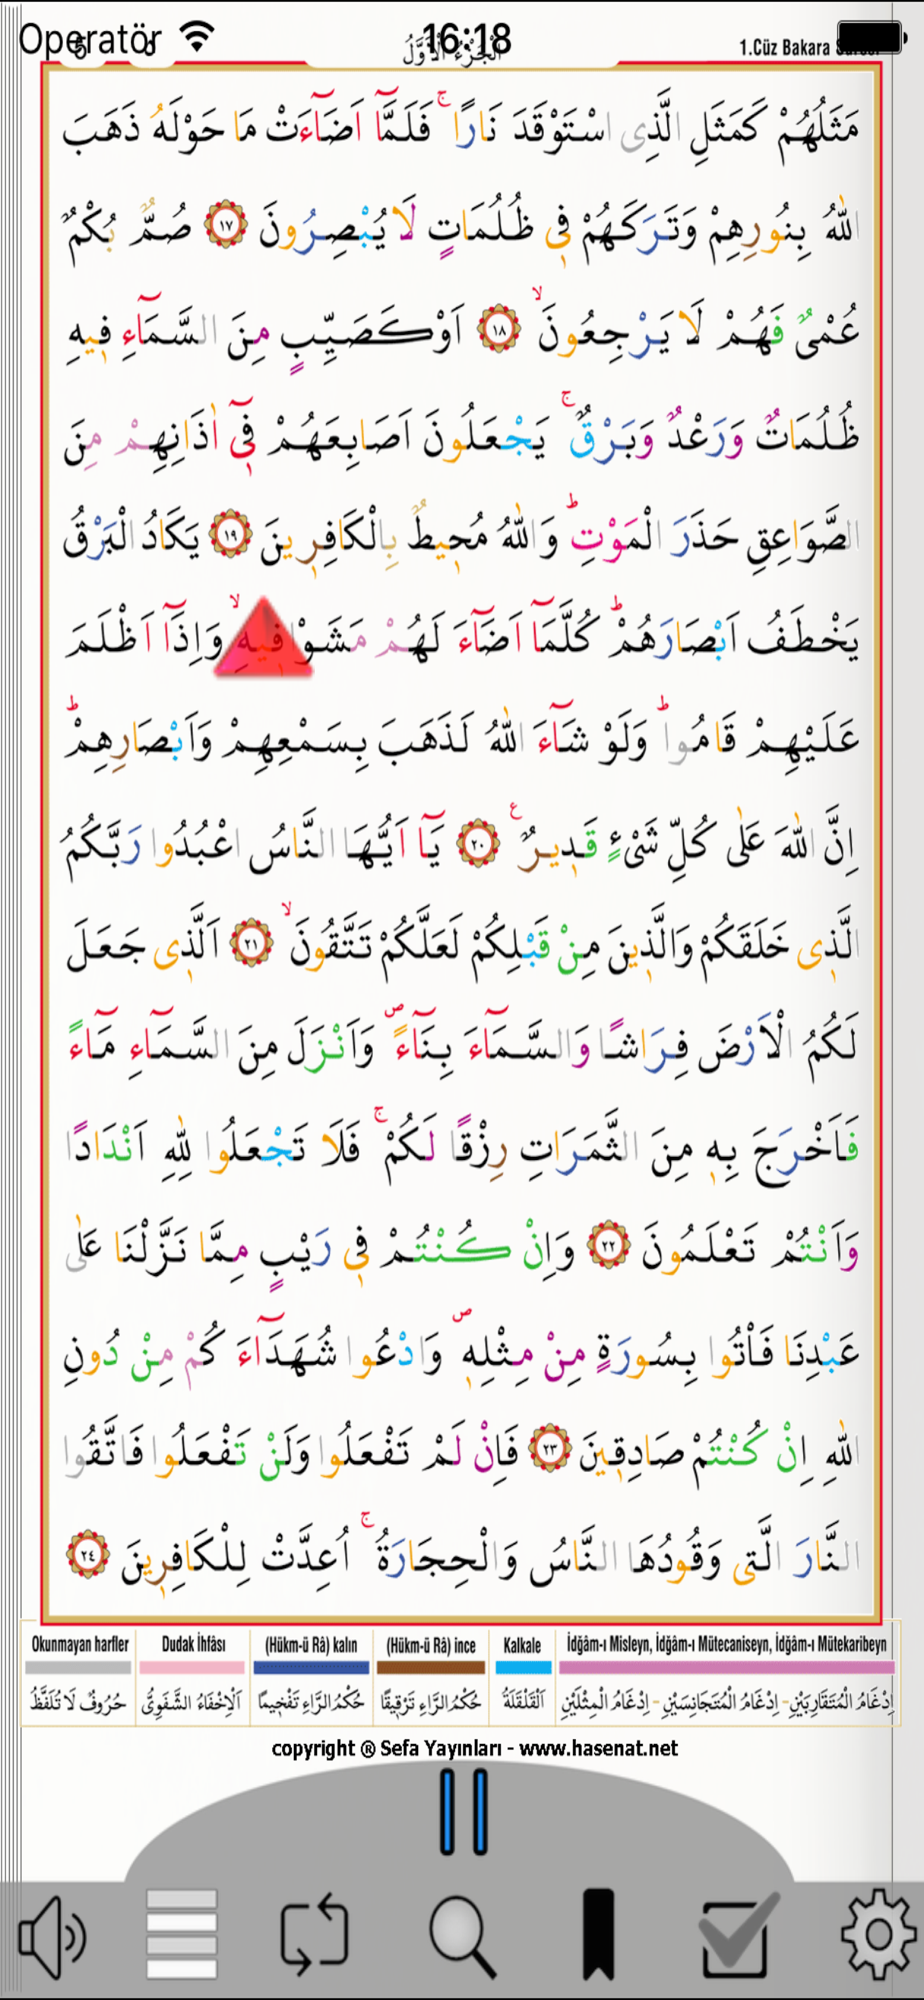 Operatör 16:18
الْجُزْءُ الْاَوَّلُ 1.Cüz Bakara
مَثَلُهُمْ كَمَثَلِ الَّذِى اسْتَوْقَدَ نَارًاۚ فَلَمَّٓا اَضَٓاءَتْ مَا حَوْلَهُ ذَهَبَ
اللّٰهُ بِنُورِهِمْ وَتَرَكَهُمْ ف۪ى ظُلُمَاتٍ لَا يُبْصِرُونَ ﴿١٧﴾ صُمٌّ بُكْمٌ
عُمْىٌ فَهُمْ لَا يَرْجِعُونَۙ ﴿١٨﴾ اَوْ كَصَيِّبٍ مِنَ السَّمَٓاءِ ف۪يهِ
ظُلُمَاتٌ وَرَعْدٌ وَبَرْقٌۚ يَجْعَلُونَ اَصَابِعَهُمْ ف۪ٓى اٰذَانِهِمْ مِنَ
الصَّوَاعِقِ حَذَرَ الْمَوْتِۜ وَاللّٰهُ مُح۪يطٌ بِالْكَافِر۪ينَ ﴿١٩﴾ يَكَادُ الْبَرْقُ
يَخْطَفُ اَبْصَارَهُمْۜ كُلَّمَٓا اَضَٓاءَ لَهُمْ مَشَوْا ف۪يهِۙ وَاِذَٓا اَظْلَمَ
عَلَيْهِمْ قَامُواۜ وَلَوْ شَٓاءَ اللّٰهُ لَذَهَبَ بِسَمْعِهِمْ وَاَبْصَارِهِمْۜ
اِنَّ اللّٰهَ عَلٰى كُلِّ شَىْءٍ قَد۪يرٌ۟ ﴿٢٠﴾ يَٓا اَيُّهَا النَّاسُ اعْبُدُوا رَبَّكُمُ
الَّذ۪ى خَلَقَكُمْ وَالَّذ۪ينَ مِنْ قَبْلِكُمْ لَعَلَّكُمْ تَتَّقُونَۙ ﴿٢١﴾ اَلَّذ۪ى جَعَلَ
لَكُمُ الْاَرْضَ فِرَاشًا وَالسَّمَٓاءَ بِنَٓاءًۖ وَاَنْزَلَ مِنَ السَّمَٓاءِ مَٓاءً
فَاَخْرَجَ بِه۪ مِنَ الثَّمَرَاتِ رِزْقًا لَكُمْۚ فَلَا تَجْعَلُوا لِلّٰهِ اَنْدَادًا
وَاَنْتُمْ تَعْلَمُونَ ﴿٢٢﴾ وَاِنْ كُنْتُمْ ف۪ى رَيْبٍ مِمَّا نَزَّلْنَا عَلٰى
عَبْدِنَا فَأْتُوا بِسُورَةٍ مِنْ مِثْلِه۪ۖ وَادْعُوا شُهَدَٓاءَكُمْ مِنْ دُونِ
اللّٰهِ اِنْ كُنْتُمْ صَادِق۪ينَ ﴿٢٣﴾ فَاِنْ لَمْ تَفْعَلُوا وَلَنْ تَفْعَلُوا فَاتَّقُوا
النَّارَ الَّت۪ى وَقُودُهَا النَّاسُ وَالْحِجَارَةُۚ اُعِدَّتْ لِلْكَافِر۪ينَ ﴿٢٤﴾
Okunmayan harfler Dudak İhfâsı (Hükm-ü Râ) kalın (Hükm-ü Râ) ince Kalkale İdğâm-ı Misleyn, İdğâm-ı Mütecaniseyn, İdğâm-ı Mütekaribeyn
حُرُوفٌ لَا تُلَفَّظُ اَلْاِخْفَاءُ الشَّفَوِىُّ حُكْمُ الرَّاءِ تَفْخ۪يمًا حُكْمُ الرَّاءِ تَرْق۪يقًا اَلْقَلْقَلَةُ اِدْغَامُ الْمُتَقَارِبَيْنِ - اِدْغَامُ الْمُتَجَانِسَيْنِ - اِدْغَامُ الْمِثْلَيْنِ
copyright ® Sefa Yayınları - www.hasenat.net